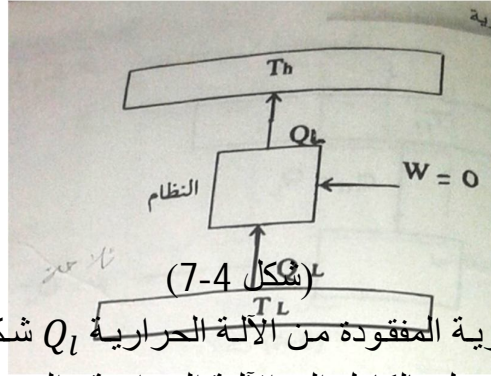 رية
Th
QL
W = 0
النظام
(شكل 4-7)
Q L
T L
رية المفقودة من الآلة الحرارية Q_l شك